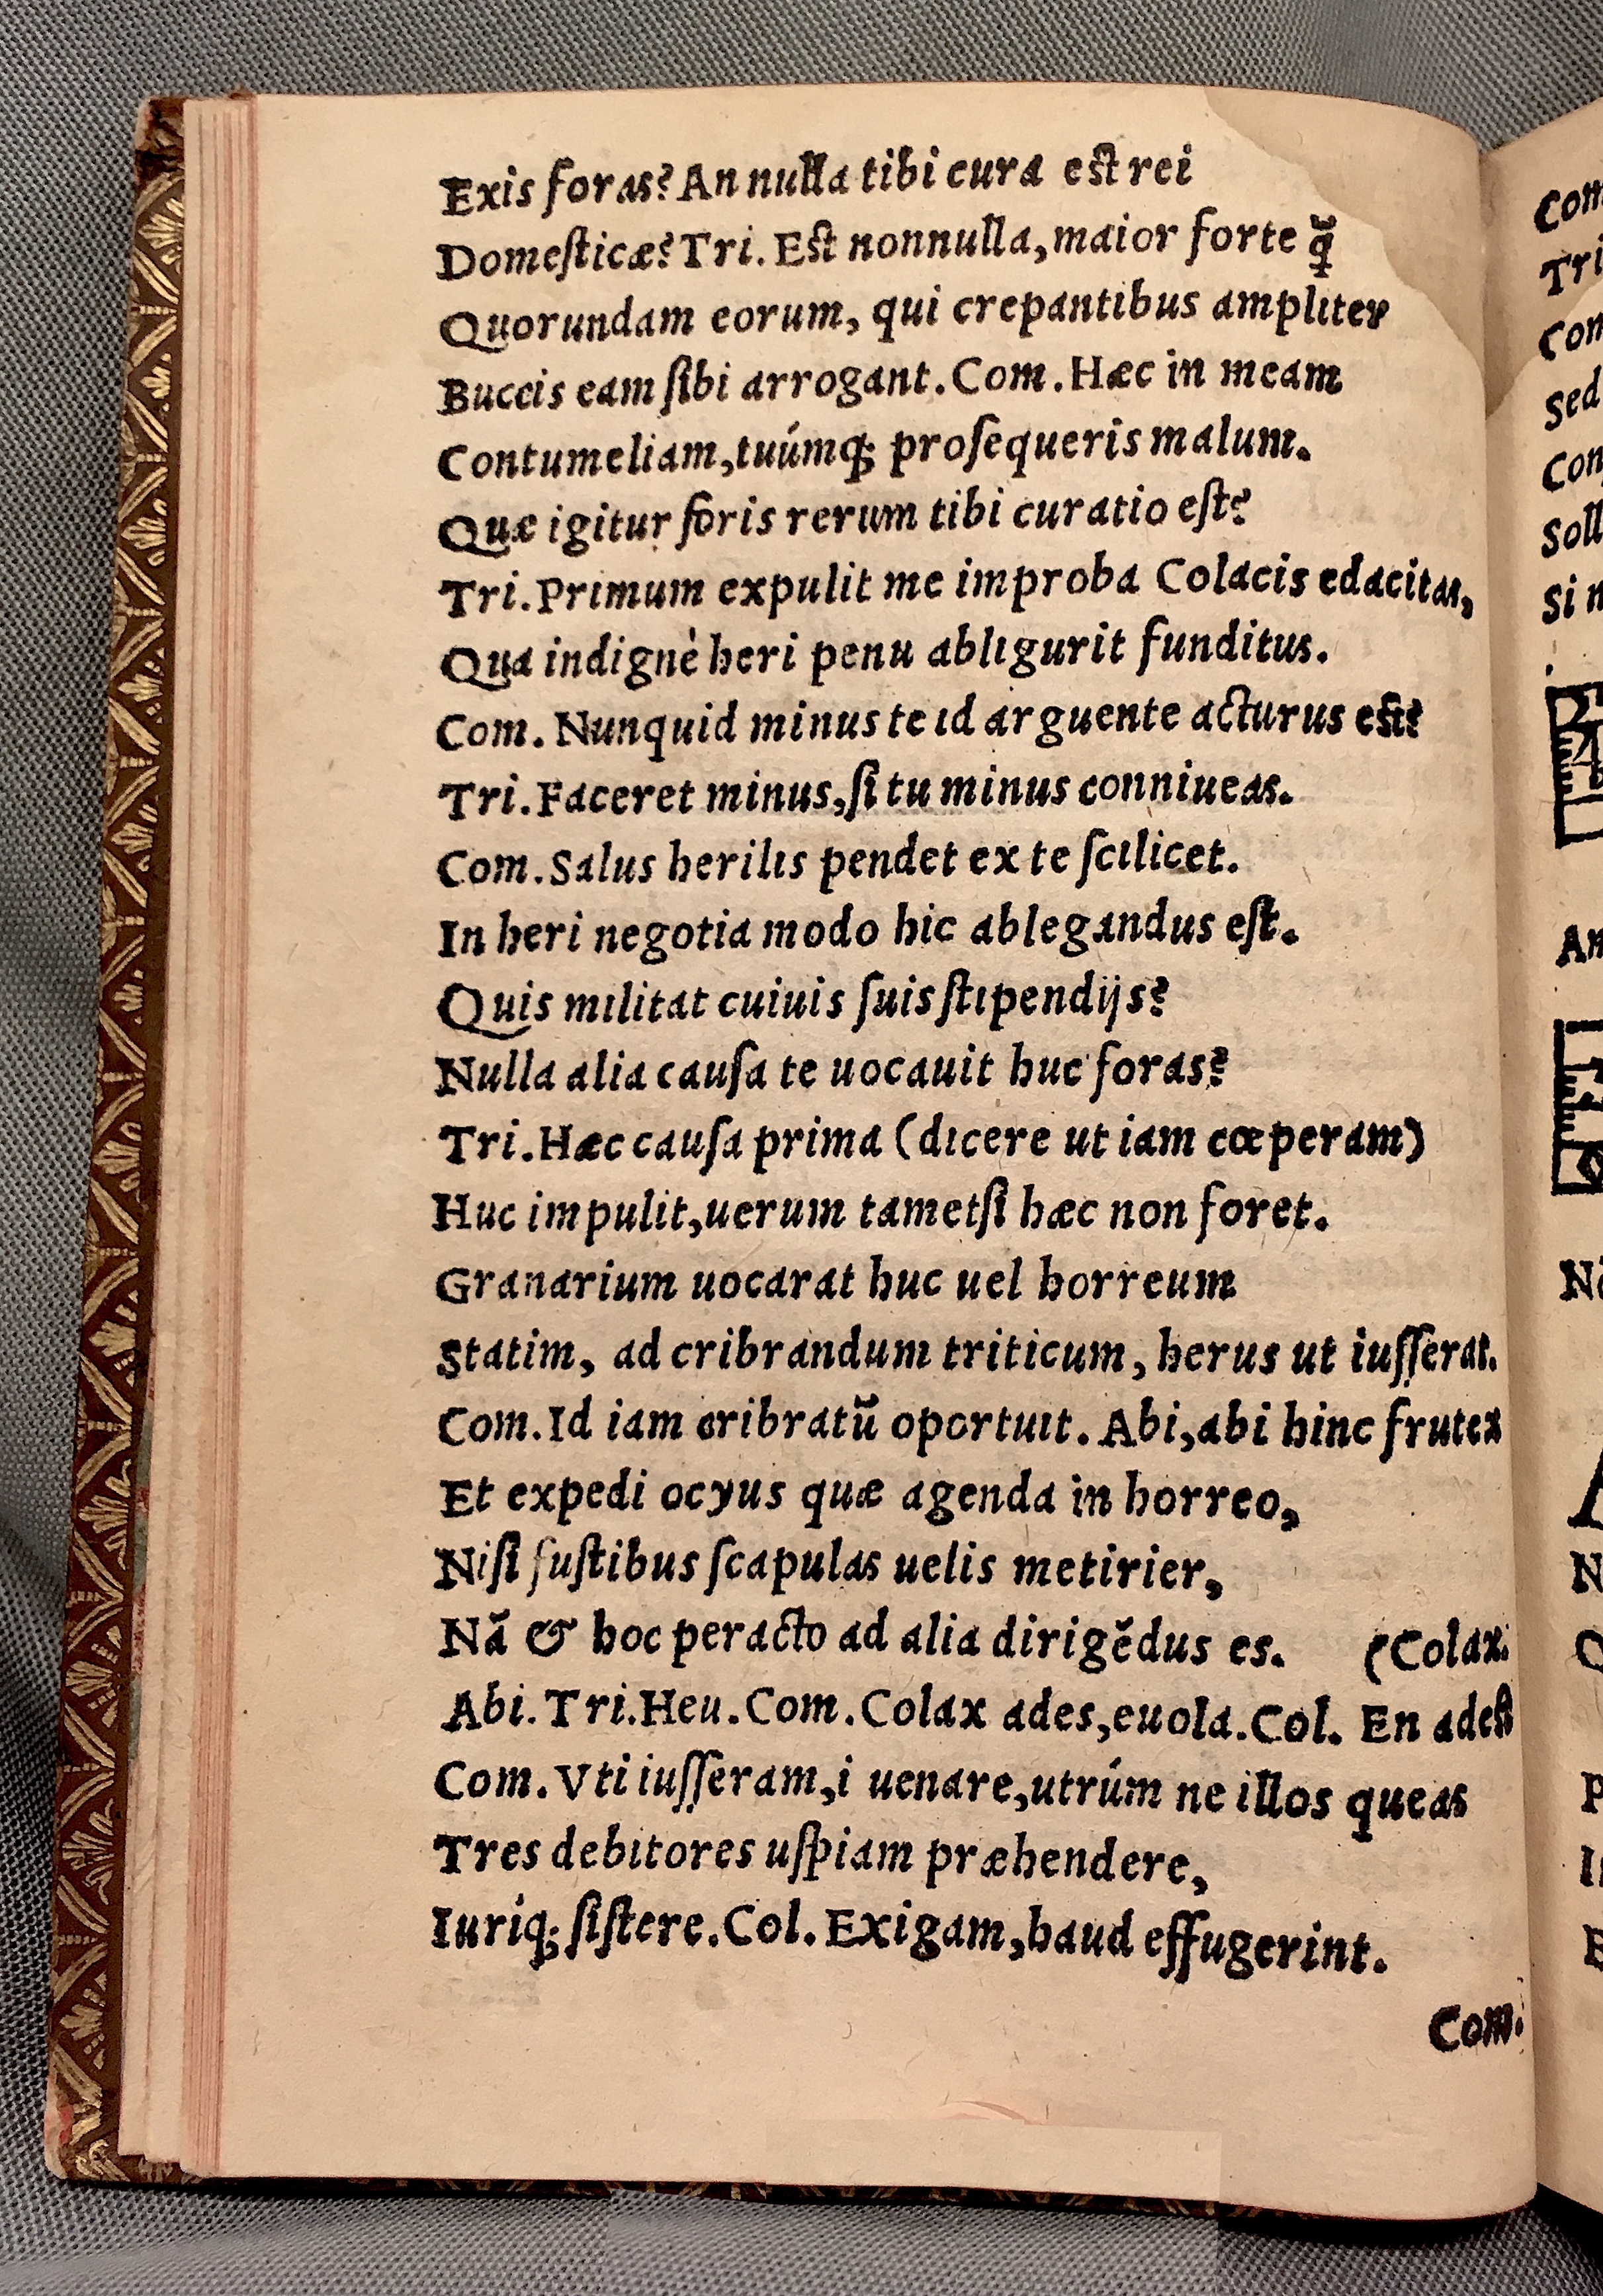 Exis foras? An nulla tibi cura est rei
Domesticæ? Tri. Est nonnulla, maior forte q̃
Quorundam eorum, qui crepantibus ampliter
Buccis eam ſibi arrogant. Com. Hæc in meam
Contumeliam, tuúmq; proſequeris malum.
Quæ igitur foris rerum tibi curatio eſt?
Tri. Primum expulit me improba Colacis edacitas,
Qua indignè heri penu abligurit funditus.
Com. Nunquid minus te id arguente acturus est?
Tri. Faceret minus, ſi tu minus conniueas.
Com. Salus herilis pendet ex te ſcilicet.
In heri negotia modo hic ablegandus eſt.
Quis militat cuiuis ſuis ſtipendijs?
Nulla alia cauſa te uocauit huc foras?
Tri. Hæc cauſa prima (dicere ut iam cœperam)
Huc impulit, uerum tametſi hæc non foret.
Granarium uocarat huc uel horreum
Statim, ad cribrandum triticum, herus ut iuſſerat.
Com. Id iam cribratũ oportuit. Abi, abi hinc frutex
Et expedi ocyus quæ agenda in horreo,
Niſi fuſtibus ſcapulas uelis metirier,
Nã & hoc peracto ad alia dirigẽdus es. (Colax.
Abi. Tri. Heu. Com. Colax ades, euola. Col. En adest
Com. Vti iuſſeram, i uenare, utrúm ne illos queas
Tres debitores uſpiam præhendere,
Iuriq; ſiſtere. Col. Exigam, haud effugerint.
Com.
Com
Tri
Com
Sed
Con
Soll
Si
An